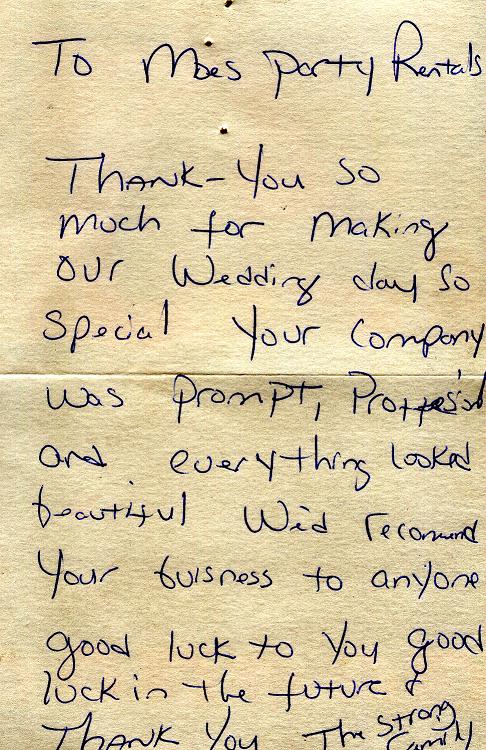 To Moes Party Rentals
Thank-You so
much for making
our Wedding day so
special Your Company
was prompt, Proffesion
and everything looked
beautiful We'd recomend
Your buisness to anyone
good luck to You good
luck in the future &
Thank You The Strong
Family